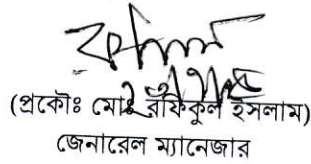 (প্রকৌঃ মোঃ রফিকুল ইসলাম)
জেনারেল ম্যানেজার